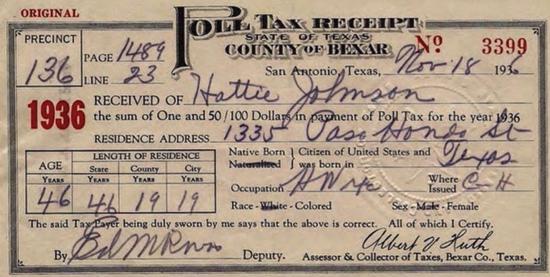 ORIGINAL
POLL TAX RECEIPT
STATE OF TEXAS
COUNTY OF BEXAR
PRECINCT 136
PAGE 1489
LINE 23
No 3399
San Antonio, Texas, Nov 18 1936
1936
RECEIVED OF Hattie Johnson
the sum of One and 50/100 Dollars in payment of Poll Tax for the year 1936
RESIDENCE ADDRESS 1335 Paso Hondo St
AGE LENGTH OF RESIDENCE
YEARS State County City
YEARS YEARS YEARS
46 46 19 19
Native Born Citizen of United States and
Naturalized was born in Texas
Occupation H Wife Where Issued C-H
Race-White-Colored Sex-Male-Female
The said Tax Payer being duly sworn by me says that the above is correct. All of which I Certify.
By Deputy. Albert V Huth
Assessor & Collector of Taxes, Bexar Co., Texas.